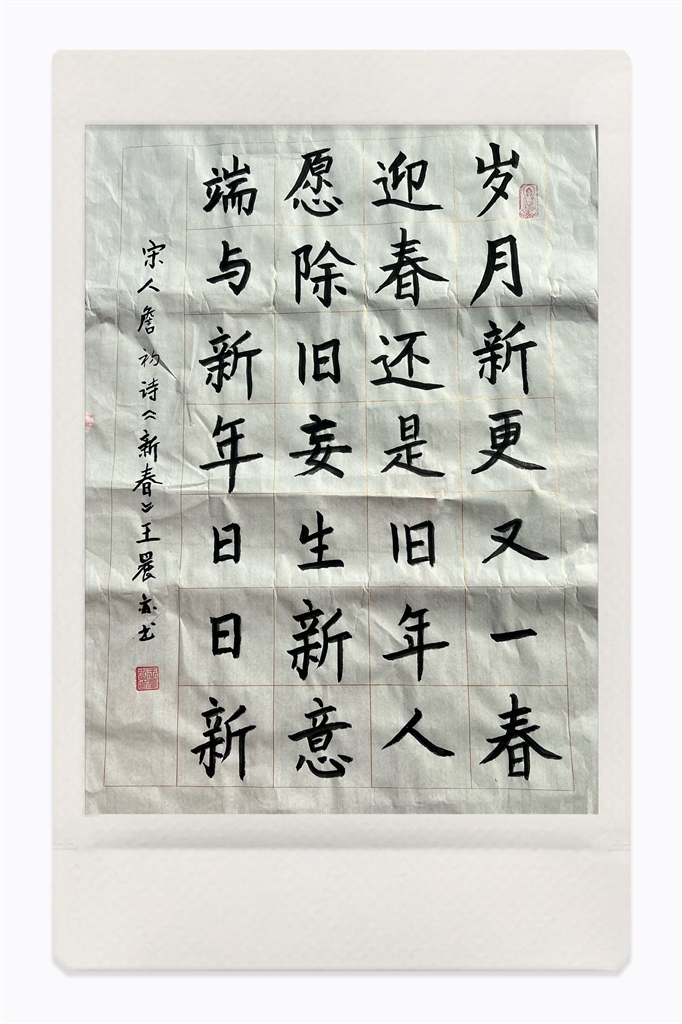 岁月新更又一春
迎春还是旧年人
愿除旧妄生新意
端与新年日日新
宋人詹初诗《新春》王晨亦书